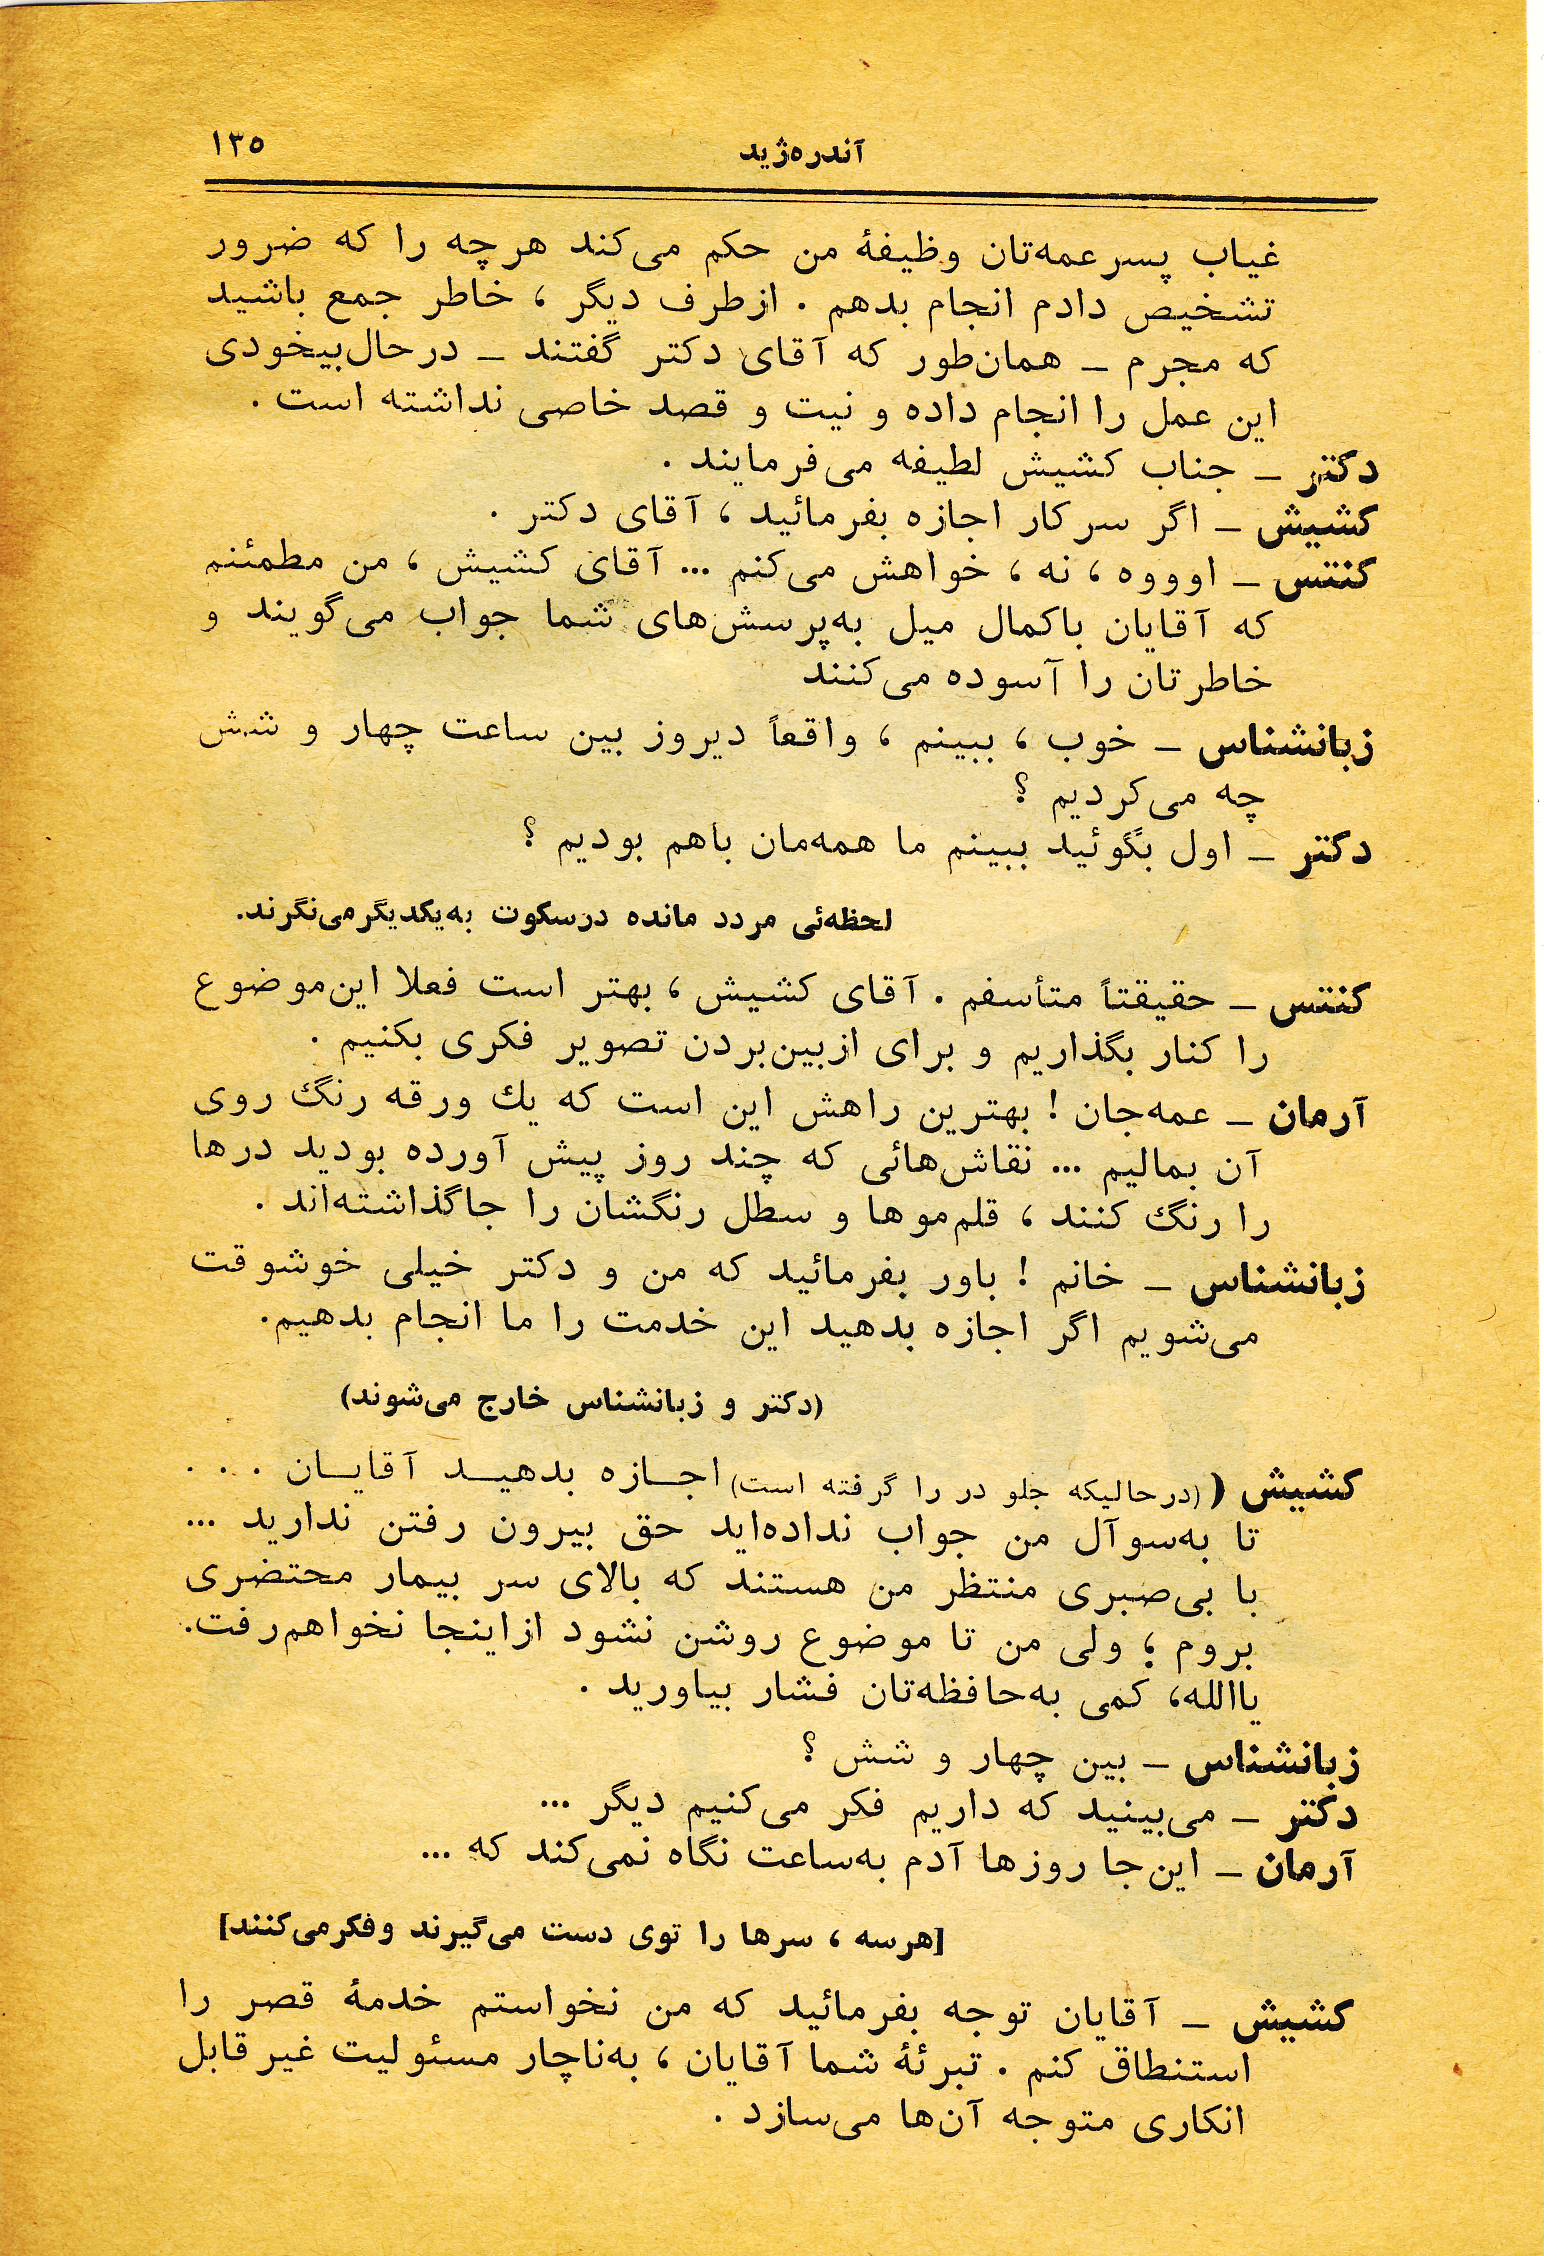 آندره‌ژید
۱۳۵
غیاب پسرعمه‌تان وظیفهٔ من حکم می‌کند هرچه را که ضرور
تشخیص دادم انجام بدهم . ازطرف دیگر ، خاطر جمع باشید
که مجرم – همان‌طور که آقای دکتر گفتند – درحال‌بیخودی
این عمل را انجام داده و نیت و قصد خاصی نداشته است .
دکتر – جناب کشیش لطیفه می‌فرمایند .
کشیش – اگر سرکار اجازه بفرمائید ، آقای دکتر .
کنتس – اوووه ، نه ، خواهش می‌کنم ... آقای کشیش ، من مطمئنم
که آقایان باکمال میل به‌پرسش‌های شما جواب می‌گویند و
خاطرتان را آسوده می‌کنند
زبانشناس – خوب ، ببینم ، واقعاً دیروز بین ساعت چهار و شش
چه می‌کردیم ؟
دکتر – اول بگوئید ببینم ما همه‌مان باهم بودیم ؟
لحظه‌ئی مردد مانده درسکوت به‌یکدیگرمی‌نگرند.
کنتس – حقیقتاً متأسفم . آقای کشیش ، بهتر است فعلا این‌موضوع
را کنار بگذاریم و برای ازبین‌بردن تصویر فکری بکنیم .
آرمان – عمه‌جان ! بهترین راهش این است که یك ورقه رنگ روی
آن بمالیم ... نقاش‌هائی که چند روز پیش آورده بودید درها
را رنگ کنند ، قلم‌موها و سطل رنگشان را جاگذاشته‌اند .
زبانشناس – خانم ! باور بفرمائید که من و دکتر خیلی خوشوقت
می‌شویم اگر اجازه بدهید این خدمت را ما انجام بدهیم.
(دکتر و زبانشناس خارج می‌شوند)
کشیش ( (درحالیکه جلو در را گرفته است) اجـازه بدهیـد آقایـان . . .
تا به‌سوآل من جواب نداده‌اید حق بیرون رفتن ندارید ...
با بی‌صبری منتظر من هستند که بالای سر بیمار محتضری
بروم ؛ ولی من تا موضوع روشن نشود ازاینجا نخواهم‌رفت.
یاالله، کمی به‌حافظه‌تان فشار بیاورید .
زبانشناس – بین چهار و شش ؟
دکتر – می‌بینید که داریم فکر می‌کنیم دیگر ...
آرمان – این‌جا روزها آدم به‌ساعت نگاه نمی‌کند که ...
[هرسه ، سرها را توی دست می‌گیرند وفکرمی‌کنند]
کشیش – آقایان توجه بفرمائید که من نخواستم خدمهٔ قصر را
استنطاق کنم . تبرئهٔ شما آقایان ، به‌ناچار مسئولیت غیرقابل
انکاری متوجه آن‌ها می‌سازد .